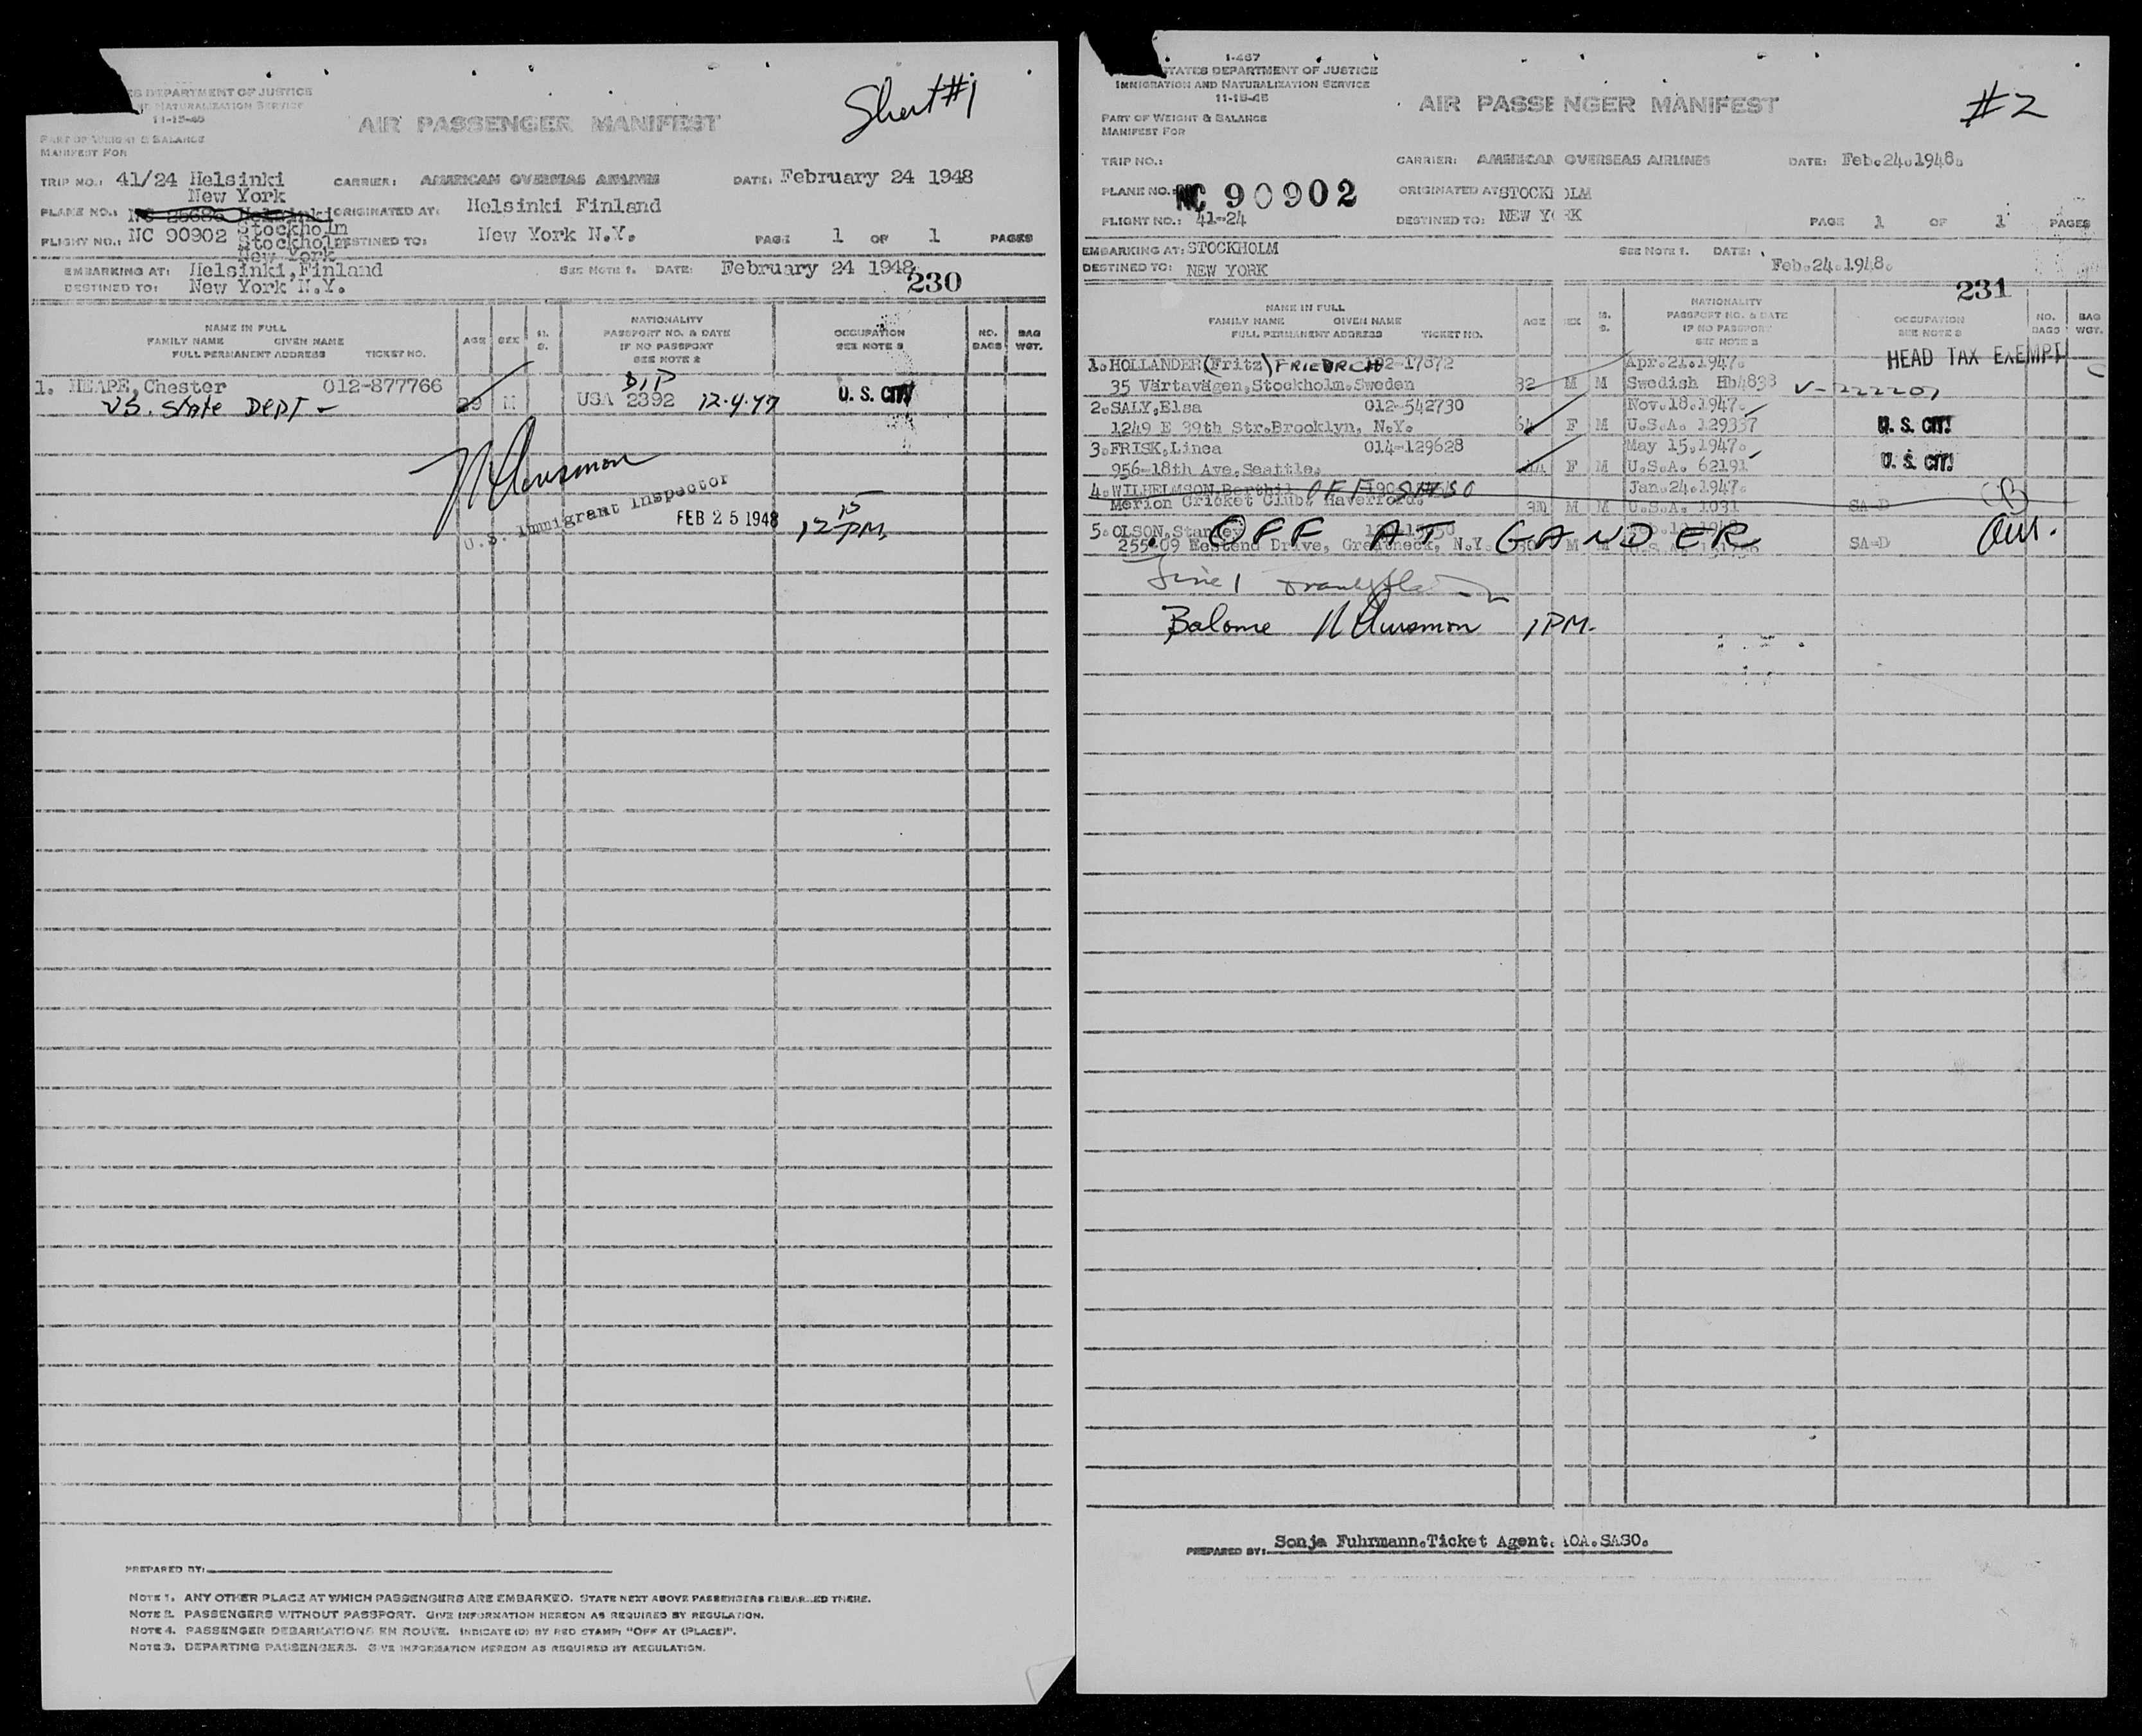 ES DEPARTMENT OF JUSTICE
ND NATURALIZATION SERVICE
11-15-45
AIR PASSENGER MANIFEST
Sheet #1
PART OF WEIGHT & BALANCE
MANIFEST FOR
TRIP NO.: 41/24 Helsinki CARRIER: AMERICAN OVERSEAS AIRLINES DATE: February 24 1948
New York
PLANE NO.: NC 25686 Helsinki ORIGINATED AT: Helsinki Finland
Stockholm
FLIGHT NO.: NC 90902 Stockholm DESTINED TO: New York N.Y. PAGE 1 OF 1 PAGES
New York
EMBARKING AT: Helsinki, Finland SEE NOTE 1. DATE: February 24 1948
DESTINED TO: New York N.Y. 230
NAME IN FULL
FAMILY NAME GIVEN NAME
FULL PERMANENT ADDRESS TICKET NO.
AGE SEX M. S.
NATIONALITY
PASSPORT NO. & DATE
IF NO PASSPORT
SEE NOTE 2
OCCUPATION
SEE NOTE 3
NO. BAGS
BAG WGT.
1. HEAPE, Chester 012-877766 DIP
US. State DEPT - 29 M USA 2392 12-4-47 U. S. CIT!
U.S. Immigrant Inspector
FEB 25 1948 12 15 PM
PREPARED BY:
NOTE 1. ANY OTHER PLACE AT WHICH PASSENGERS ARE EMBARKED. STATE NEXT ABOVE PASSENGERS EMBARKED THERE.
NOTE 2. PASSENGERS WITHOUT PASSPORT. GIVE INFORMATION HEREON AS REQUIRED BY REGULATION.
NOTE 4. PASSENGER DEBARKATIONS EN ROUTE. INDICATE (D) BY RED STAMP: "OFF AT (PLACE)".
NOTE 3. DEPARTING PASSENGERS. GIVE INFORMATION HEREON AS REQUIRED BY REGULATION.
I-467
STATES DEPARTMENT OF JUSTICE
IMMIGRATION AND NATURALIZATION SERVICE
11-15-45
AIR PASSENGER MANIFEST
#2
PART OF WEIGHT & BALANCE
MANIFEST FOR
TRIP NO.: CARRIER: AMERICAN OVERSEAS AIRLINES DATE: Feb.24.1948.
PLANE NO.: NC 90902 ORIGINATED AT STOCKHOLM
FLIGHT NO.: 41-24 DESTINED TO: NEW YORK PAGE 1 OF 1 PAGES
EMBARKING AT: STOCKHOLM SEE NOTE 1. DATE: Feb.24.1948.
DESTINED TO: NEW YORK
231
NAME IN FULL
FAMILY NAME GIVEN NAME
FULL PERMANENT ADDRESS TICKET NO.
AGE SEX M. S.
NATIONALITY
PASSPORT NO. & DATE
IF NO PASSPORT
SEE NOTE 2
OCCUPATION
SEE NOTE 3
NO. BAGS
BAG WGT.
1. HOLLANDER (Fritz) FRIEDRCH 2-17672 Apr.21.1947. HEAD TAX EXEMPT
35 Värtavägen, Stockholm. Sweden 32 M M Swedish Hb4833 V-222207
2. SALY, Elsa 012-542730 Nov.18.1947.
1249 E 39th Str. Brooklyn, N.Y. F M U.S.A. 129337 U. S. CIT!
3. FRISK, Linea 014-129628 May 15.1947.
956-18th Ave, Seattle. F M U.S.A. 62191 U. S. CIT!
4. WILHELMSON, Berthil OFF SASO Jan.24.1947.
Merion Cricket Club, Haverford. M M U.S.A. 1031 SA-D
5. OLSON, Stanley OFF AT GANDER
255-09 Eastend Drive, Greatneck, N.Y. M M SA-D
Line 1
Balance 1 PM.
PREPARED BY: Sonja Fuhrmann. Ticket Agent. AOA. SASO.